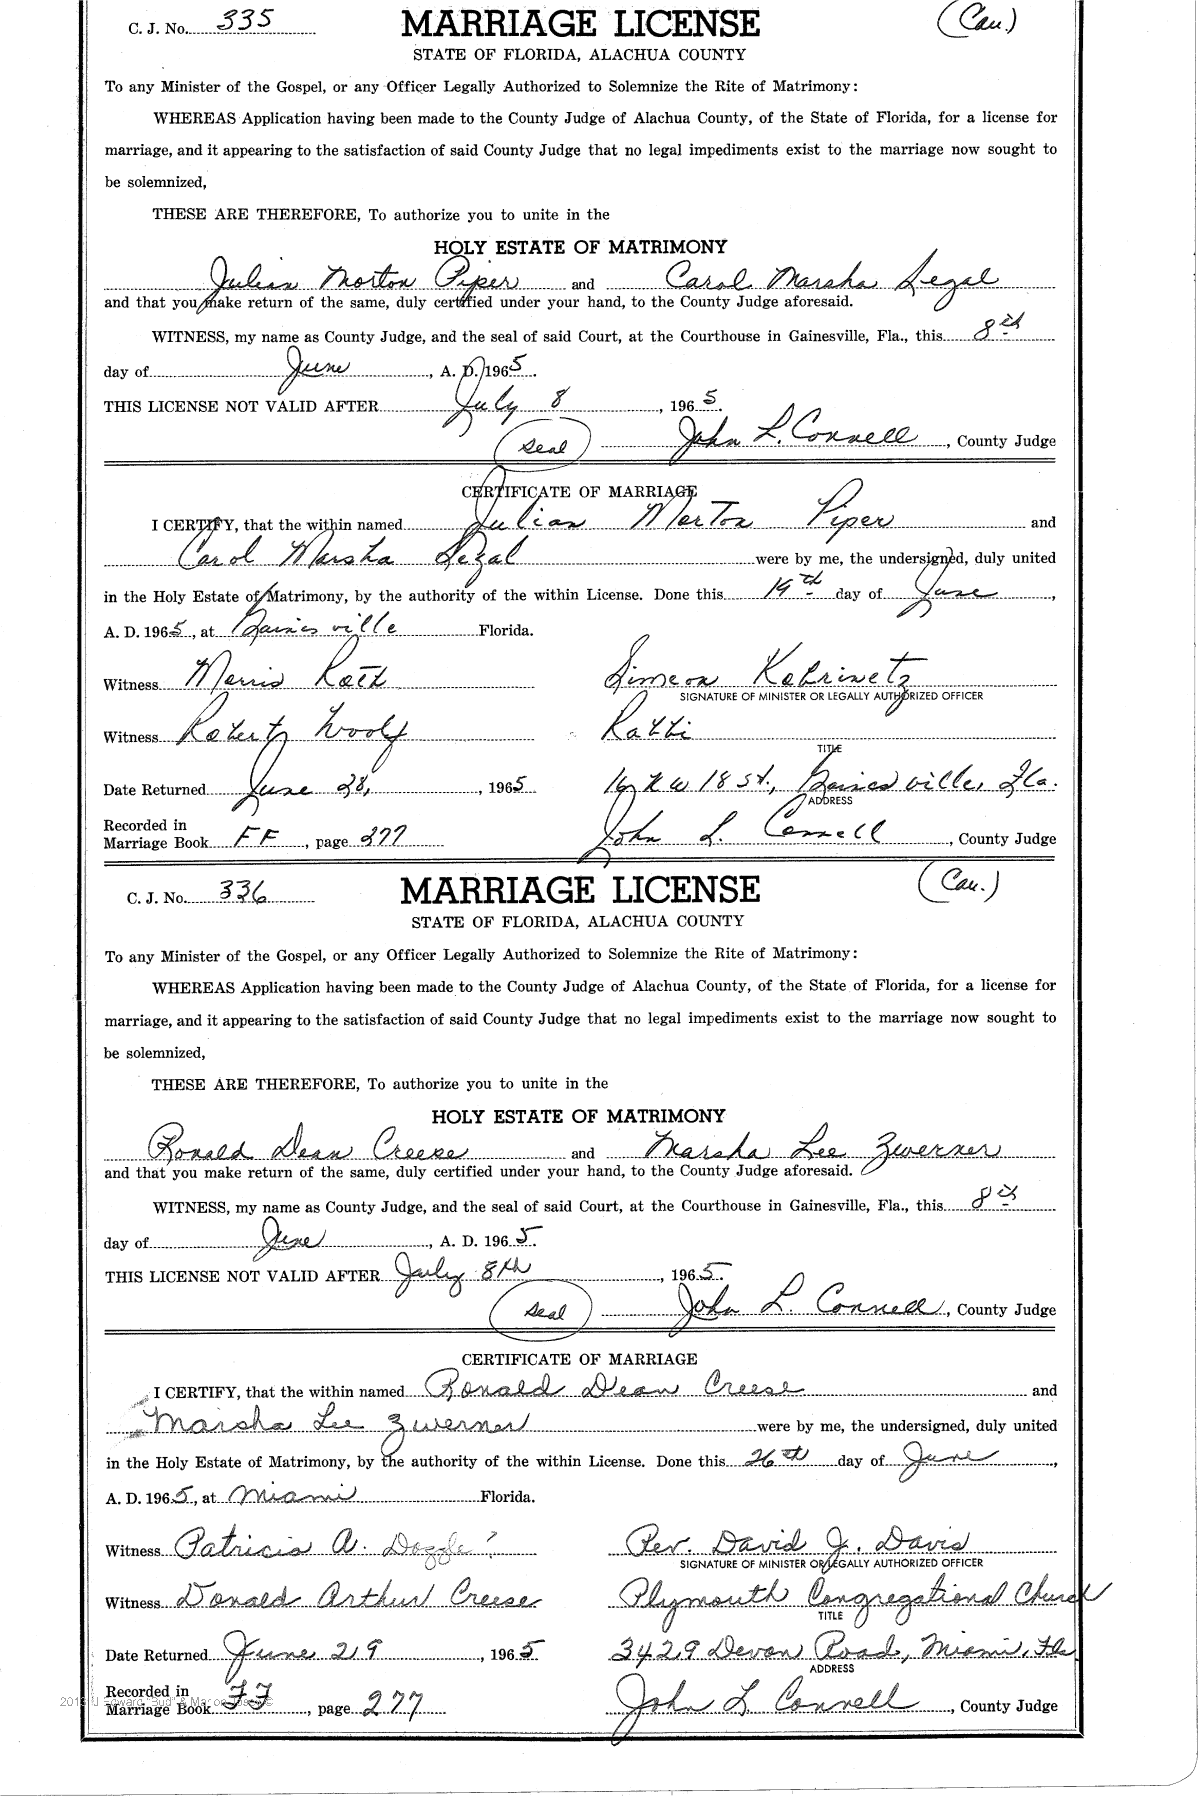 C. J. No. 335 MARRIAGE LICENSE (Cau.)
STATE OF FLORIDA, ALACHUA COUNTY
To any Minister of the Gospel, or any Officer Legally Authorized to Solemnize the Rite of Matrimony:
WHEREAS Application having been made to the County Judge of Alachua County, of the State of Florida, for a license for
marriage, and it appearing to the satisfaction of said County Judge that no legal impediments exist to the marriage now sought to
be solemnized,
THESE ARE THEREFORE, To authorize you to unite in the
HOLY ESTATE OF MATRIMONY
Julian Morton Piper and Carol Marsha Segal
and that you make return of the same, duly certified under your hand, to the County Judge aforesaid.
WITNESS, my name as County Judge, and the seal of said Court, at the Courthouse in Gainesville, Fla., this 8th
day of June, A. D. 1965.
THIS LICENSE NOT VALID AFTER July 8, 1965.
Seal John L. Connell, County Judge
CERTIFICATE OF MARRIAGE
I CERTIFY, that the within named Julian Morton Piper and
Carol Marsha Segal were by me, the undersigned, duly united
in the Holy Estate of Matrimony, by the authority of the within License. Done this 19th day of June,
A. D. 1965, at Gainesville Florida.
Witness Morris Simeon Kobrinetz
SIGNATURE OF MINISTER OR LEGALLY AUTHORIZED OFFICER
Witness Robert Woolf Rabbi
TITLE
Date Returned June 28, 1965 16 N W 18 St., Gainesville, Fla.
ADDRESS
Recorded in
Marriage Book FF, page 277 John L. Connell, County Judge
C. J. No. 336 MARRIAGE LICENSE (Cau.)
STATE OF FLORIDA, ALACHUA COUNTY
To any Minister of the Gospel, or any Officer Legally Authorized to Solemnize the Rite of Matrimony:
WHEREAS Application having been made to the County Judge of Alachua County, of the State of Florida, for a license for
marriage, and it appearing to the satisfaction of said County Judge that no legal impediments exist to the marriage now sought to
be solemnized,
THESE ARE THEREFORE, To authorize you to unite in the
HOLY ESTATE OF MATRIMONY
Ronald Dean Creese and Marsha Lee Zwerner
and that you make return of the same, duly certified under your hand, to the County Judge aforesaid.
WITNESS, my name as County Judge, and the seal of said Court, at the Courthouse in Gainesville, Fla., this 8th
day of June, A. D. 1965.
THIS LICENSE NOT VALID AFTER July 8th, 1965.
Seal John L. Connell, County Judge
CERTIFICATE OF MARRIAGE
I CERTIFY, that the within named Ronald Dean Creese and
Marsha Lee Zwerner were by me, the undersigned, duly united
in the Holy Estate of Matrimony, by the authority of the within License. Done this 26th day of June,
A. D. 1965, at Miami Florida.
Witness Patricia A. Doggle? Rev. David J. Davis
SIGNATURE OF MINISTER OR LEGALLY AUTHORIZED OFFICER
Witness Donald Arthur Creese Plymouth Congregational Church
TITLE
Date Returned June 29, 1965 3429 Devon Road, Miami, Fla
ADDRESS
Recorded in
Marriage Book FF, page 277 John L. Connell, County Judge